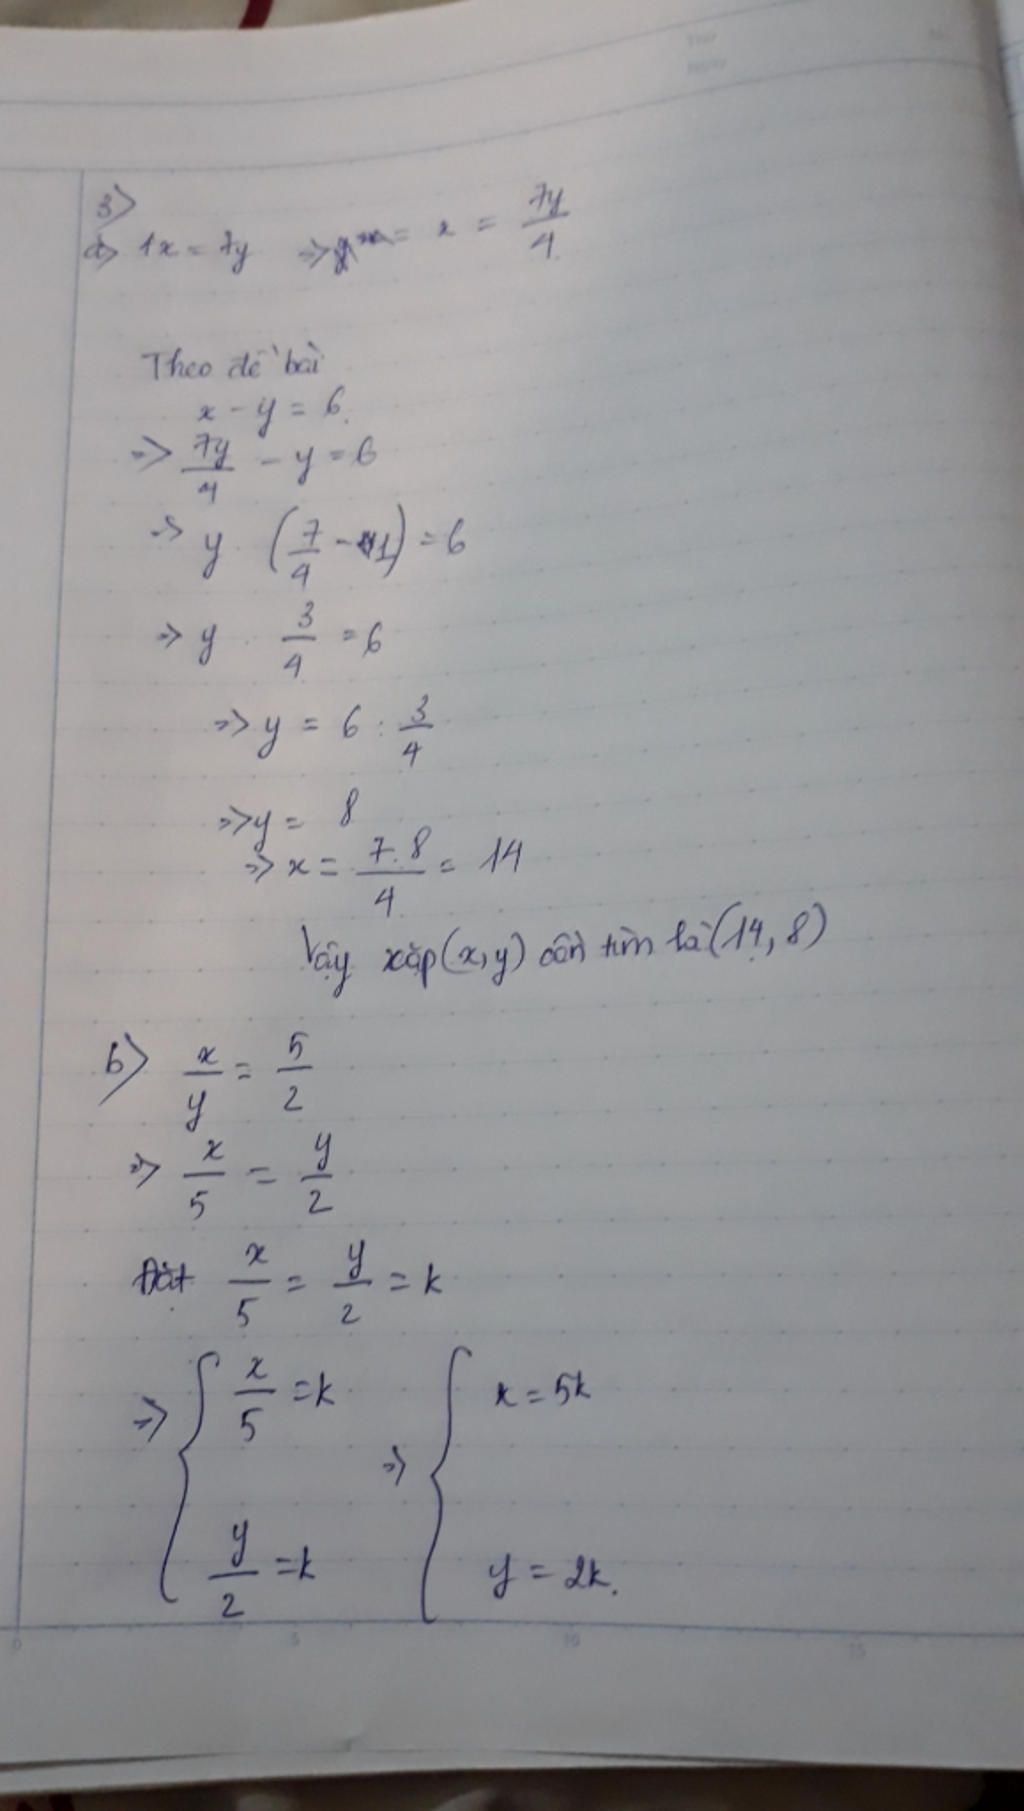 Thứ
Ngày
No.
3>
a> 4x = 7y => x = 7y/4
Theo đề bài
x - y = 6.
=> 7y/4 - y = 6
=> y . (7/4 - 1) = 6
=> y . 3/4 = 6
=> y = 6 : 3/4
=> y = 8
=> x = 7.8/4 = 14
Vậy xặp (x,y) cần tìm là (14, 8)
b> x/y = 5/2
=> x/5 = y/2
Đặt x/5 = y/2 = k
=> { x/5 = k => { x = 5k
y/2 = k y = 2k.
0 5 10 15